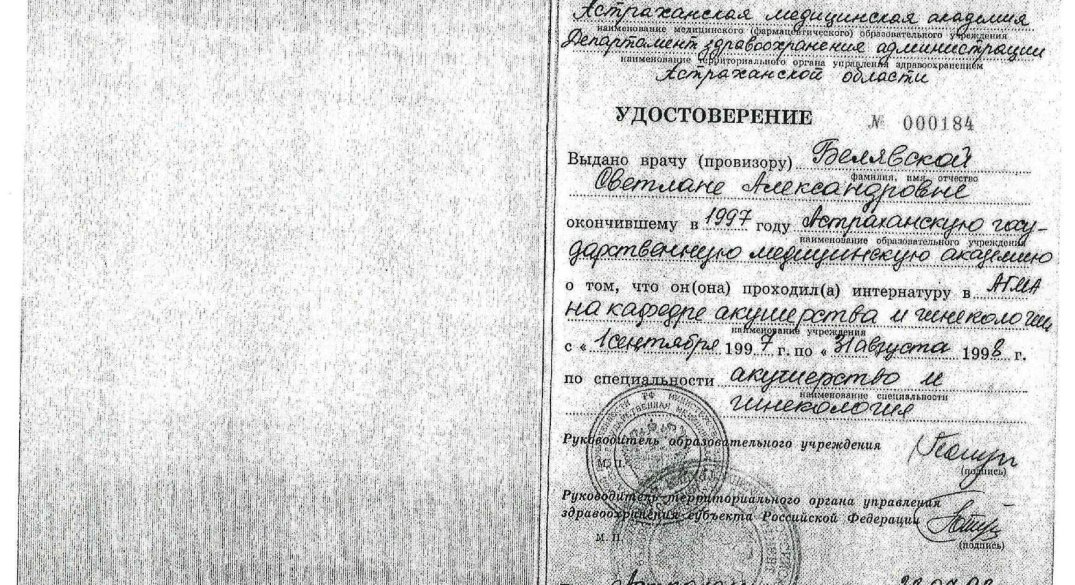 Астраханская медицинская академия
наименование медицинского (фармацевтического) образовательного учреждения
Департамент здравоохранения администрации
наименование территориального органа управления здравоохранением
Астраханской области
УДОСТОВЕРЕНИЕ № 000184
Выдано врачу (провизору) Белявской
фамилия, имя, отчество
Светлане Александровне
окончившему в 1997 году Астраханскую госу-
наименование образовательного учреждения
дарственную медицинскую академию
о том, что он(она) проходил(а) интернатуру в АГМА
на кафедре акушерства и гинекологии
наименование учреждения
с « 1 сентября 1997 г. по « 31 августа 1998 г.
по специальности акушерство и
наименование специальности
гинекология
Руководитель образовательного учреждения
М. П.
(подпись)
Руководитель территориального органа управления
здравоохранения субъекта Российской Федерации
М. П.
(подпись)